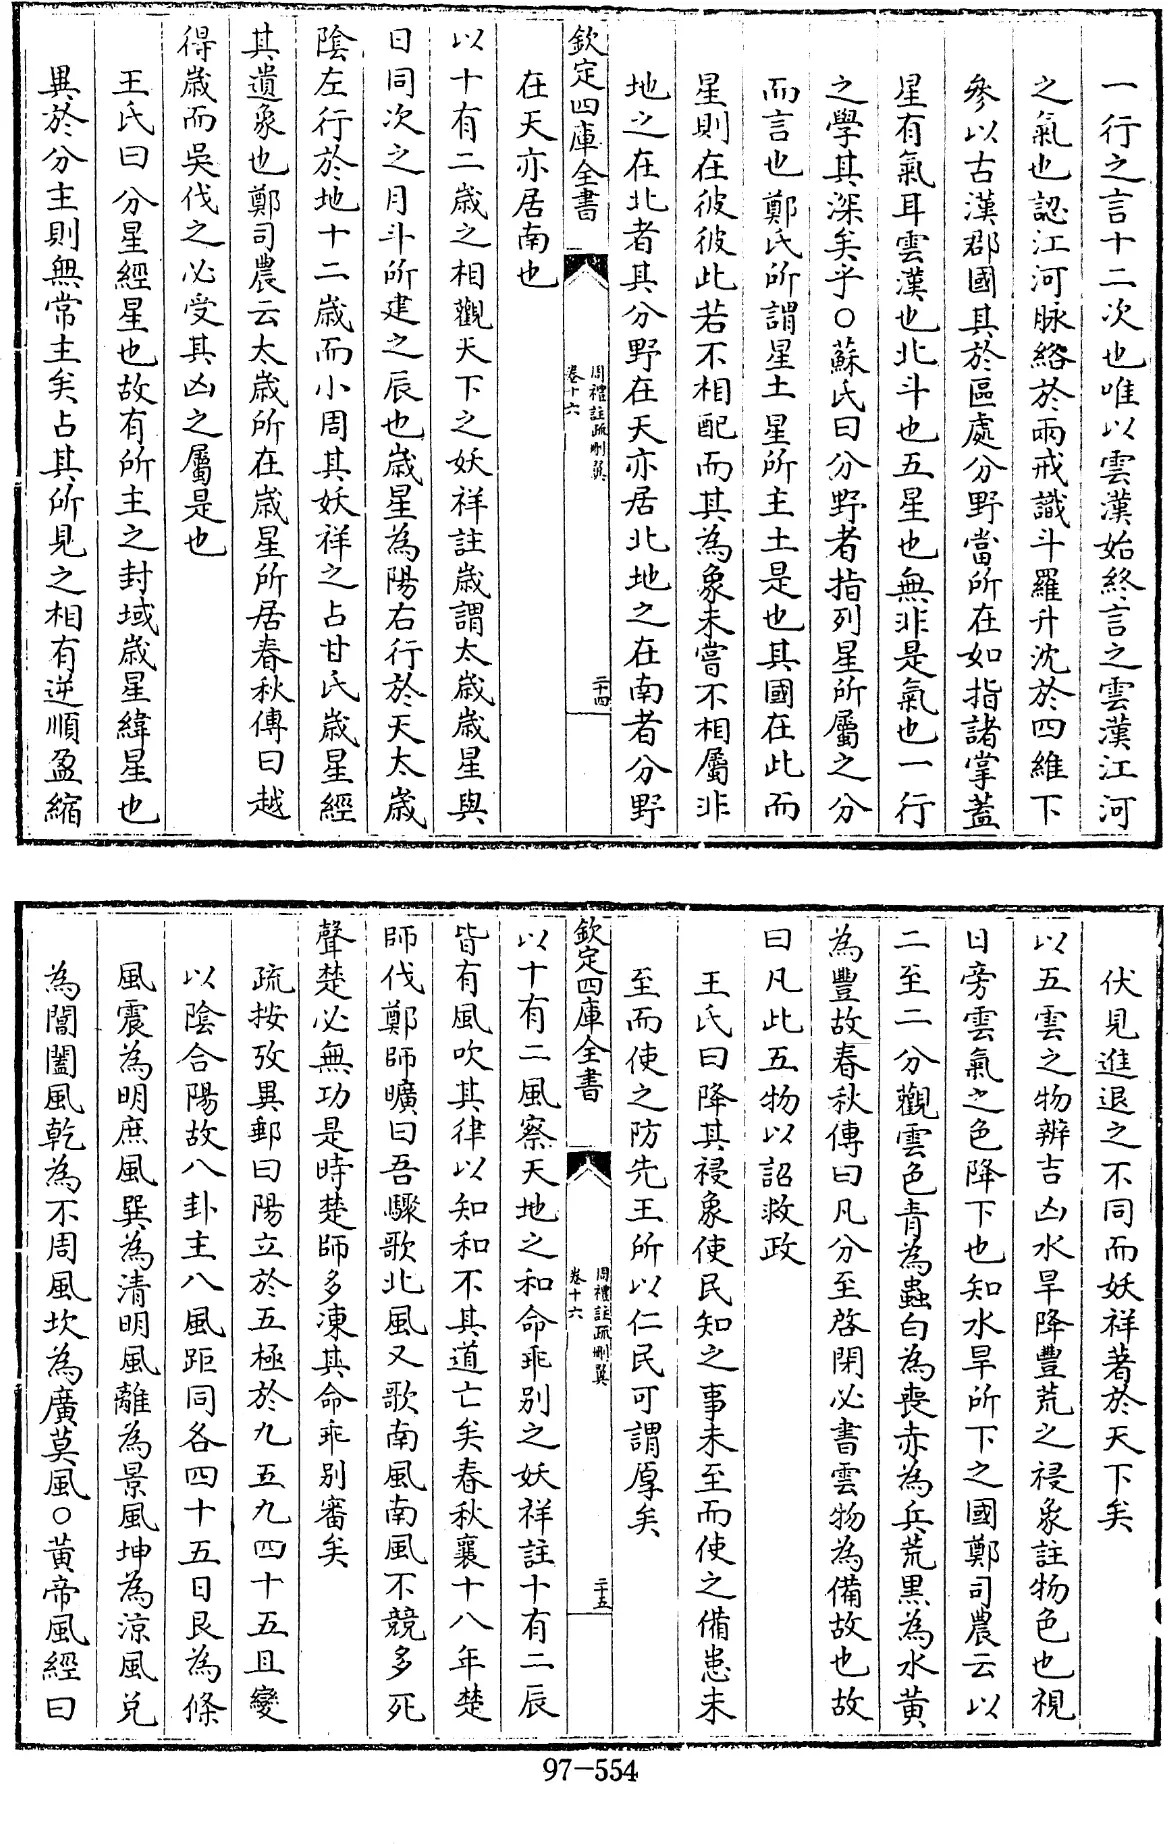 一行之言十二次也唯以雲漢始終言之雲漢江河
之氣也認江河脉絡於兩戒識斗羅升沈於四維下
參以古漢郡國其於區處分野當所在如指諸掌蓋
星有氣耳雲漢也北斗也五星也無非是氣也一行
之學其深矣乎○蘇氏曰分野者指列星所屬之分
而言也鄭氏所謂星土星所主土是也其國在此而
星則在彼彼此若不相配而其為象未嘗不相屬非
地之在北者其分野在天亦居北地之在南者分野
欽定四庫全書
周禮註疏刪翼
卷十六
二十四
在天亦居南也
以十有二歲之相觀天下之妖祥註歲謂太歲歲星與
日同次之月斗所建之辰也歲星為陽右行於天太歲
陰左行於地十二歲而小周其妖祥之占甘氏歲星經
其遺象也鄭司農云太歲所在歲星所居春秋傳曰越
得歲而吳伐之必受其凶之屬是也
王氏曰分星經星也故有所主之封域歲星緯星也
異於分主則無常主矣占其所見之相有逆順盈縮
伏見進退之不同而妖祥著於天下矣
以五雲之物辨吉凶水旱降豐荒之祲象註物色也視
日旁雲氣之色降下也知水旱所下之國鄭司農云以
二至二分觀雲色青為蟲白為喪赤為兵荒黑為水黃
為豐故春秋傳曰凡分至啓閉必書雲物為備故也故
曰凡此五物以詔救政
王氏曰降其祲象使民知之事未至而使之備患未
至而使之防先王所以仁民可謂厚矣
欽定四庫全書
周禮註疏刪翼
卷十六
二十五
以十有二風察天地之和命乖別之妖祥註十有二辰
皆有風吹其律以知和不其道亡矣春秋襄十八年楚
師伐鄭師曠曰吾驟歌北風又歌南風南風不競多死
聲楚必無功是時楚師多凍其命乖別審矣
疏按攷異郵曰陽立於五極於九五九四十五且變
以陰合陽故八卦主八風距同各四十五日艮為條
風震為明庶風巽為清明風離為景風坤為涼風兌
為閶闔風乾為不周風坎為廣莫風○黃帝風經曰
97-554